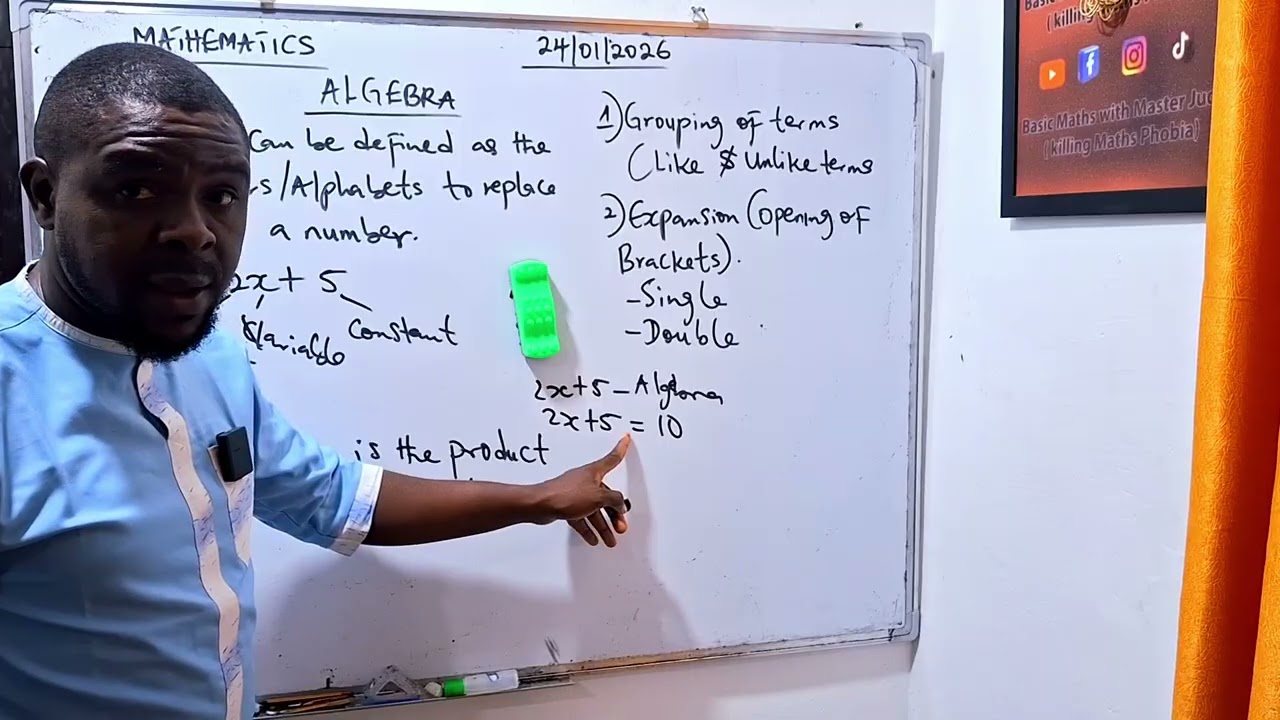 MATHEMATICS
24/01/2026
ALGEBRA
Can be defined as the
rs/Alphabets to replace
a number.
2x + 5
Variable
Constant
is the product
1) Grouping of terms
(Like $ Unlike terms
2) Expansion (Opening of
Brackets).
- Single
- Double
2x+5 -
2x+5 = 10
Basic
(killing
Basic Maths with Master Jud
(killing Maths Phobia)